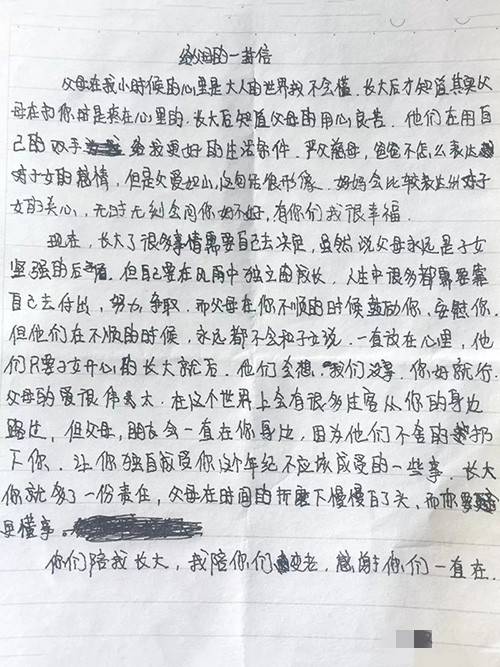 给父母的一封信
父母在我小时候的心里是大人的世界我不会懂.长大后才知道其实父
母在 你时是疼在心里的.长大后知道父母的用心良苦.他们在用自
己的双手 给我更好的生活条件.严父慈母,爸爸不怎么表达
对子女的感情,但是父爱如山,这句话很形像.妈妈会比较表达出对子
女的关心,无时无刻会问你好不好,有你们我很幸福.
现在,长大了很多事情需要自己去决定,虽然说父母永远是子女
坚强的后盾.但自己要在风雨中独立的成长.人生中很多都需要靠
自己去付出,努力,争取.而父母在你不顺的时候鼓励你,安慰你.
但他们在不顺的时候,永远都不会和子女说.一直放在心里,他
们只要子女开心的长大就后.他们会想.我们没事.你好就行.
父母的爱很伟大.在这个世界上会有很多住客从你的身边
路过,但父母,朋友会一直在你身边,因为他们不舍的扔
下你.让你独自我受你这个年纪不应该成受的一些事.长大
你就多了一份责任,父母在时间的折磨下慢慢白了头,而你要
更懂事。
你们陪我长大,我陪你们变老,感谢你们一直在.